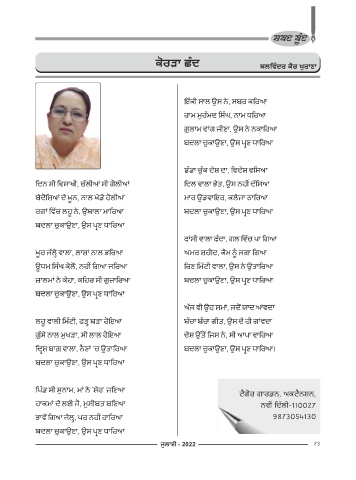 ਸ਼ਬਦ ਬੂੰਦ
ਕੋਰੜਾ ਛੰਦ
ਬਲਵਿੰਦਰ ਕੌਰ ਖੁਰਾਣਾ
ਦਿਨ ਸੀ ਵਿਸਾਖੀ, ਚੱਲੀਆਂ ਸੀ ਗੋਲੀਆਂ
ਬੇਦੋਸ਼ਿਆਂ ਦੇ ਖੂਨ, ਨਾਲ ਖੇਡੇ ਹੋਲੀਆਂ
ਰਗਾਂ ਵਿੱਚ ਲਹੂ ਨੇ, ਉਬਾਲਾ ਮਾਰਿਆ
ਬਦਲਾ ਚੁਕਾਉਣਾ, ਉਸ ਪ੍ਰਣ ਧਾਰਿਆ
ਖੂਹ ਜੱਲ੍ਹੇ ਵਾਲਾ, ਲਾਸ਼ਾਂ ਨਾਲ ਭਰਿਆ
ਊਧਮ ਸਿੰਘ ਕੋਲੋਂ, ਨਹੀਂ ਗਿਆ ਜਰਿਆ
ਜ਼ਾਲਮਾਂ ਨੇ ਕੇਹਾ, ਕਹਿਰ ਸੀ ਗੁਜ਼ਾਰਿਆ
ਬਦਲਾ ਚੁਕਾਉਣਾ, ਉਸ ਪ੍ਰਣ ਧਾਰਿਆ
ਲਹੂ ਵਾਲੀ ਮਿੱਟੀ, ਹੜ੍ਹ ਬੜਾ ਰੋਇਆ
ਗੁੱਸੇ ਨਾਲ ਮੁਖੜਾ, ਸੀ ਲਾਲ ਹੋਇਆ
ਦ੍ਰਿਸ਼ ਬਾਗ ਵਾਲਾ, ਨੈਣਾਂ 'ਚ ਉਤਾਰਿਆ
ਬਦਲਾ ਚੁਕਾਉਣਾ, ਉਸ ਪ੍ਰਣ ਧਾਰਿਆ
ਪਿੰਡ ਸੀ ਸੁਨਾਮ, ਮਾਂ ਨੇ 'ਸ਼ੇਰ' ਜਣਿਆ
ਹਾਕਮਾਂ ਦੇ ਲਈ ਜੋ, ਮੁਸੀਬਤ ਬਣਿਆ
ਭਾਵੇਂ ਗਿਆ ਜੇਲ੍ਹ, ਪਰ ਨਹੀਂ ਹਾਰਿਆ
ਬਦਲਾ ਚੁਕਾਉਣਾ, ਉਸ ਪ੍ਰਣ ਧਾਰਿਆ
ਇੱਕੀ ਸਾਲ ਉਸ ਨੇ, ਸਬਰ ਕਰਿਆ
ਰਾਮ ਮੁਹੰਮਦ ਸਿੰਘ, ਨਾਮ ਧਰਿਆ
ਗੁਲਾਮ ਵਾਂਗ ਜੀਣਾ, ਉਸ ਨੇ ਨਕਾਰਿਆ
ਬਦਲਾ ਚੁਕਾਉਣਾ, ਉਸ ਪ੍ਰਣ ਧਾਰਿਆ
ਝੰਡਾ ਚੁੱਕ ਦੇਸ਼ ਦਾ, ਵਿਦੇਸ਼ ਵਸਿਆ
ਦਿਲ ਵਾਲਾ ਭੇਤ, ਉਸ ਨਹੀਂ ਦੱਸਿਆ
ਮਾਰ ਉਡਵਾਇਰ, ਕਲੇਜਾ ਠਾਰਿਆ
ਬਦਲਾ ਚੁਕਾਉਣਾ, ਉਸ ਪ੍ਰਣ ਧਾਰਿਆ
ਫਾਂਸੀ ਵਾਲਾ ਫੰਦਾ, ਗਲ ਵਿੱਚ ਪਾ ਗਿਆ
ਅਮਰ ਸ਼ਹੀਦ, ਕੌਮ ਨੂੰ ਜਗਾ ਗਿਆ
ਰਿਣ ਮਿੱਟੀ ਵਾਲਾ, ਉਸ ਨੇ ਉਤਾਰਿਆ
ਬਦਲਾ ਚੁਕਾਉਣਾ, ਉਸ ਪ੍ਰਣ ਧਾਰਿਆ
ਅੱਜ ਵੀ ਉਹ ਸਮਾਂ, ਜਦੋਂ ਯਾਦ ਆਵਦਾ
ਬੱਚਾ ਬੱਚਾ ਗੀਤ, ਉਸ ਦੇ ਹੀ ਗਾਂਵਦਾ
ਦੇਸ਼ ਉੱਤੋਂ ਜਿਸ ਨੇ, ਸੀ ਆਪਾ ਵਾਰਿਆ
ਬਦਲਾ ਚੁਕਾਉਣਾ, ਉਸ ਪ੍ਰਣ ਧਾਰਿਆ।
ਟੈਗੋਰ ਗਾਰਡਨ, ਅਕਟੈਨਸ਼ਨ,
ਨਵੀਂ ਦਿੱਲੀ-110027
9873054130
ਜੁਲਾਈ - 2022
73